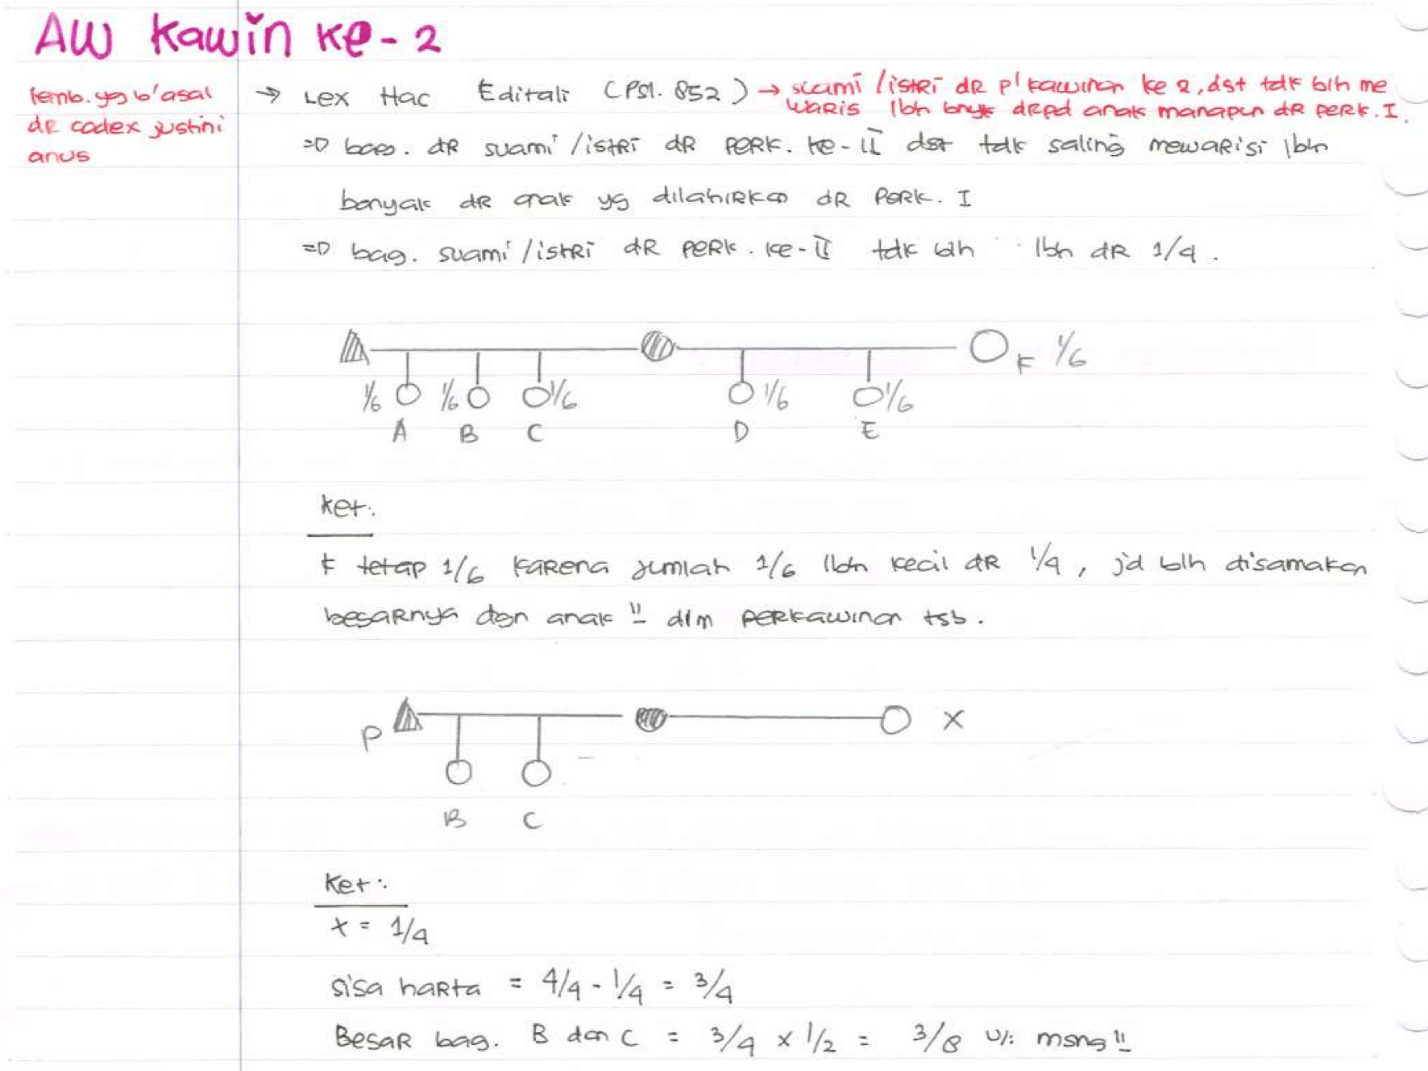 AW Kawin ke-2
lemb. yg b'asal
dr codex justini
anus
→ Lex Hac Editali (Psl. 852) → suami/istri dr p'kawinan ke 2, dst tdk blh me
waris lbh bnyk drpd anak manapun dr perk. I.
=D bag. dr suami/istri dr perk. ke-II dst tdk saling mewarisi lbh
banyak dr anak yg dilahirkan dr Perk. I
=D bag. suami/istri dr perk. ke-II tdk blh lbh dr 1/4.
F 1/6
1/6 1/6 1/6 1/6 1/6
A B C D E
ket:
F tetap 1/6 karena jumlah 1/6 lbh kecil dr 1/4, jd blh disamakan
besarnya dgn anak" dlm perkawinan tsb.
P X
B C
Ket:
x = 1/4
sisa harta = 4/4 - 1/4 = 3/4
Besar bag. B dan C = 3/4 x 1/2 = 3/8 u/: msng"